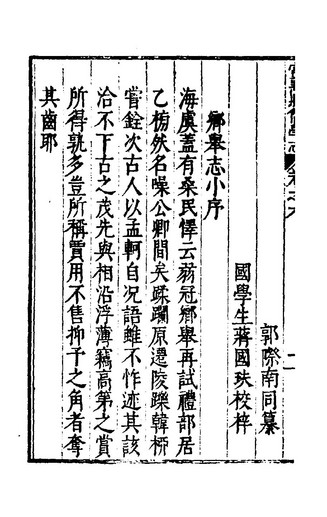 郭際南同纂
國學生蔣國玞校梓
鄉舉志小序
海虞蓋有桑民懌云弱冠鄉舉再試禮部居
乙榜然名噪公卿間矣蹂躝原遷陵躒韓柳
嘗銓次古人以孟軻自况語雖不怍迹其該
洽不下古之茂先與相沿浮薄竊高第之賞
所得孰多豈所稱賈用不售抑予之角者奪
其齒耶
二